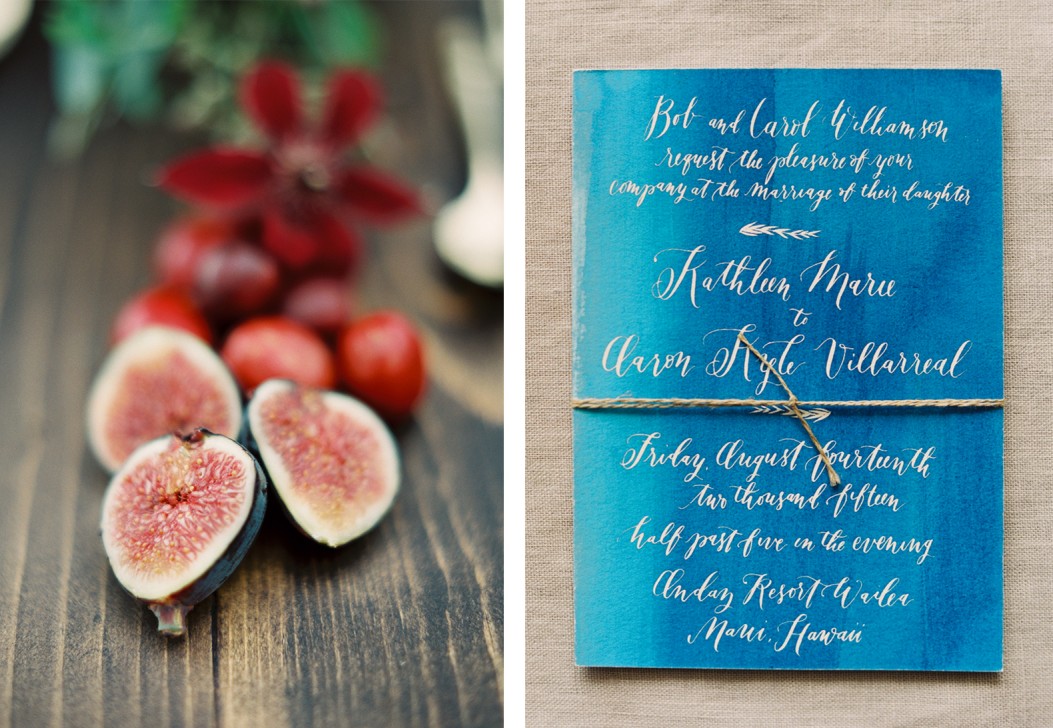 Bob and Carol Williamson
request the pleasure of your
company at the marriage of their daughter
Kathleen Marie
to
Aaron Kyle Villarreal
Friday, August fourteenth
two thousand fifteen
half past five in the evening
Andaz Resort Wailea
Maui, Hawaii